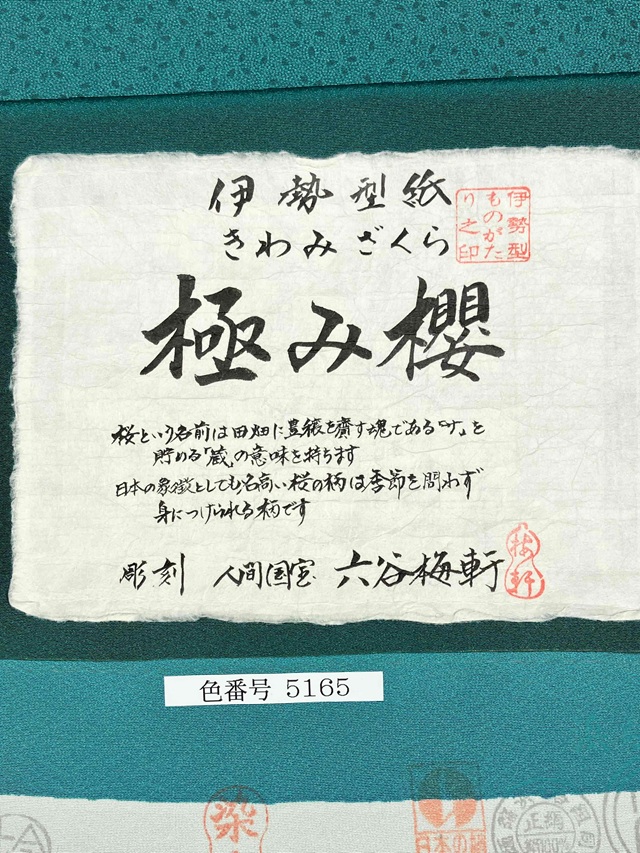 伊勢型紙
きわみざくら
伊勢型
ものがた
り之印
極み櫻
桜という名前は田畑に豊穣を齎す魂である「サ」を
貯める「蔵」の意味を持ちます
日本の象徴としても名高い桜の柄は季節を問わず
身につけられる柄です
彫刻 人間国宝 六谷梅軒
梅軒
色番号 5165
染
日本の絹
正絹